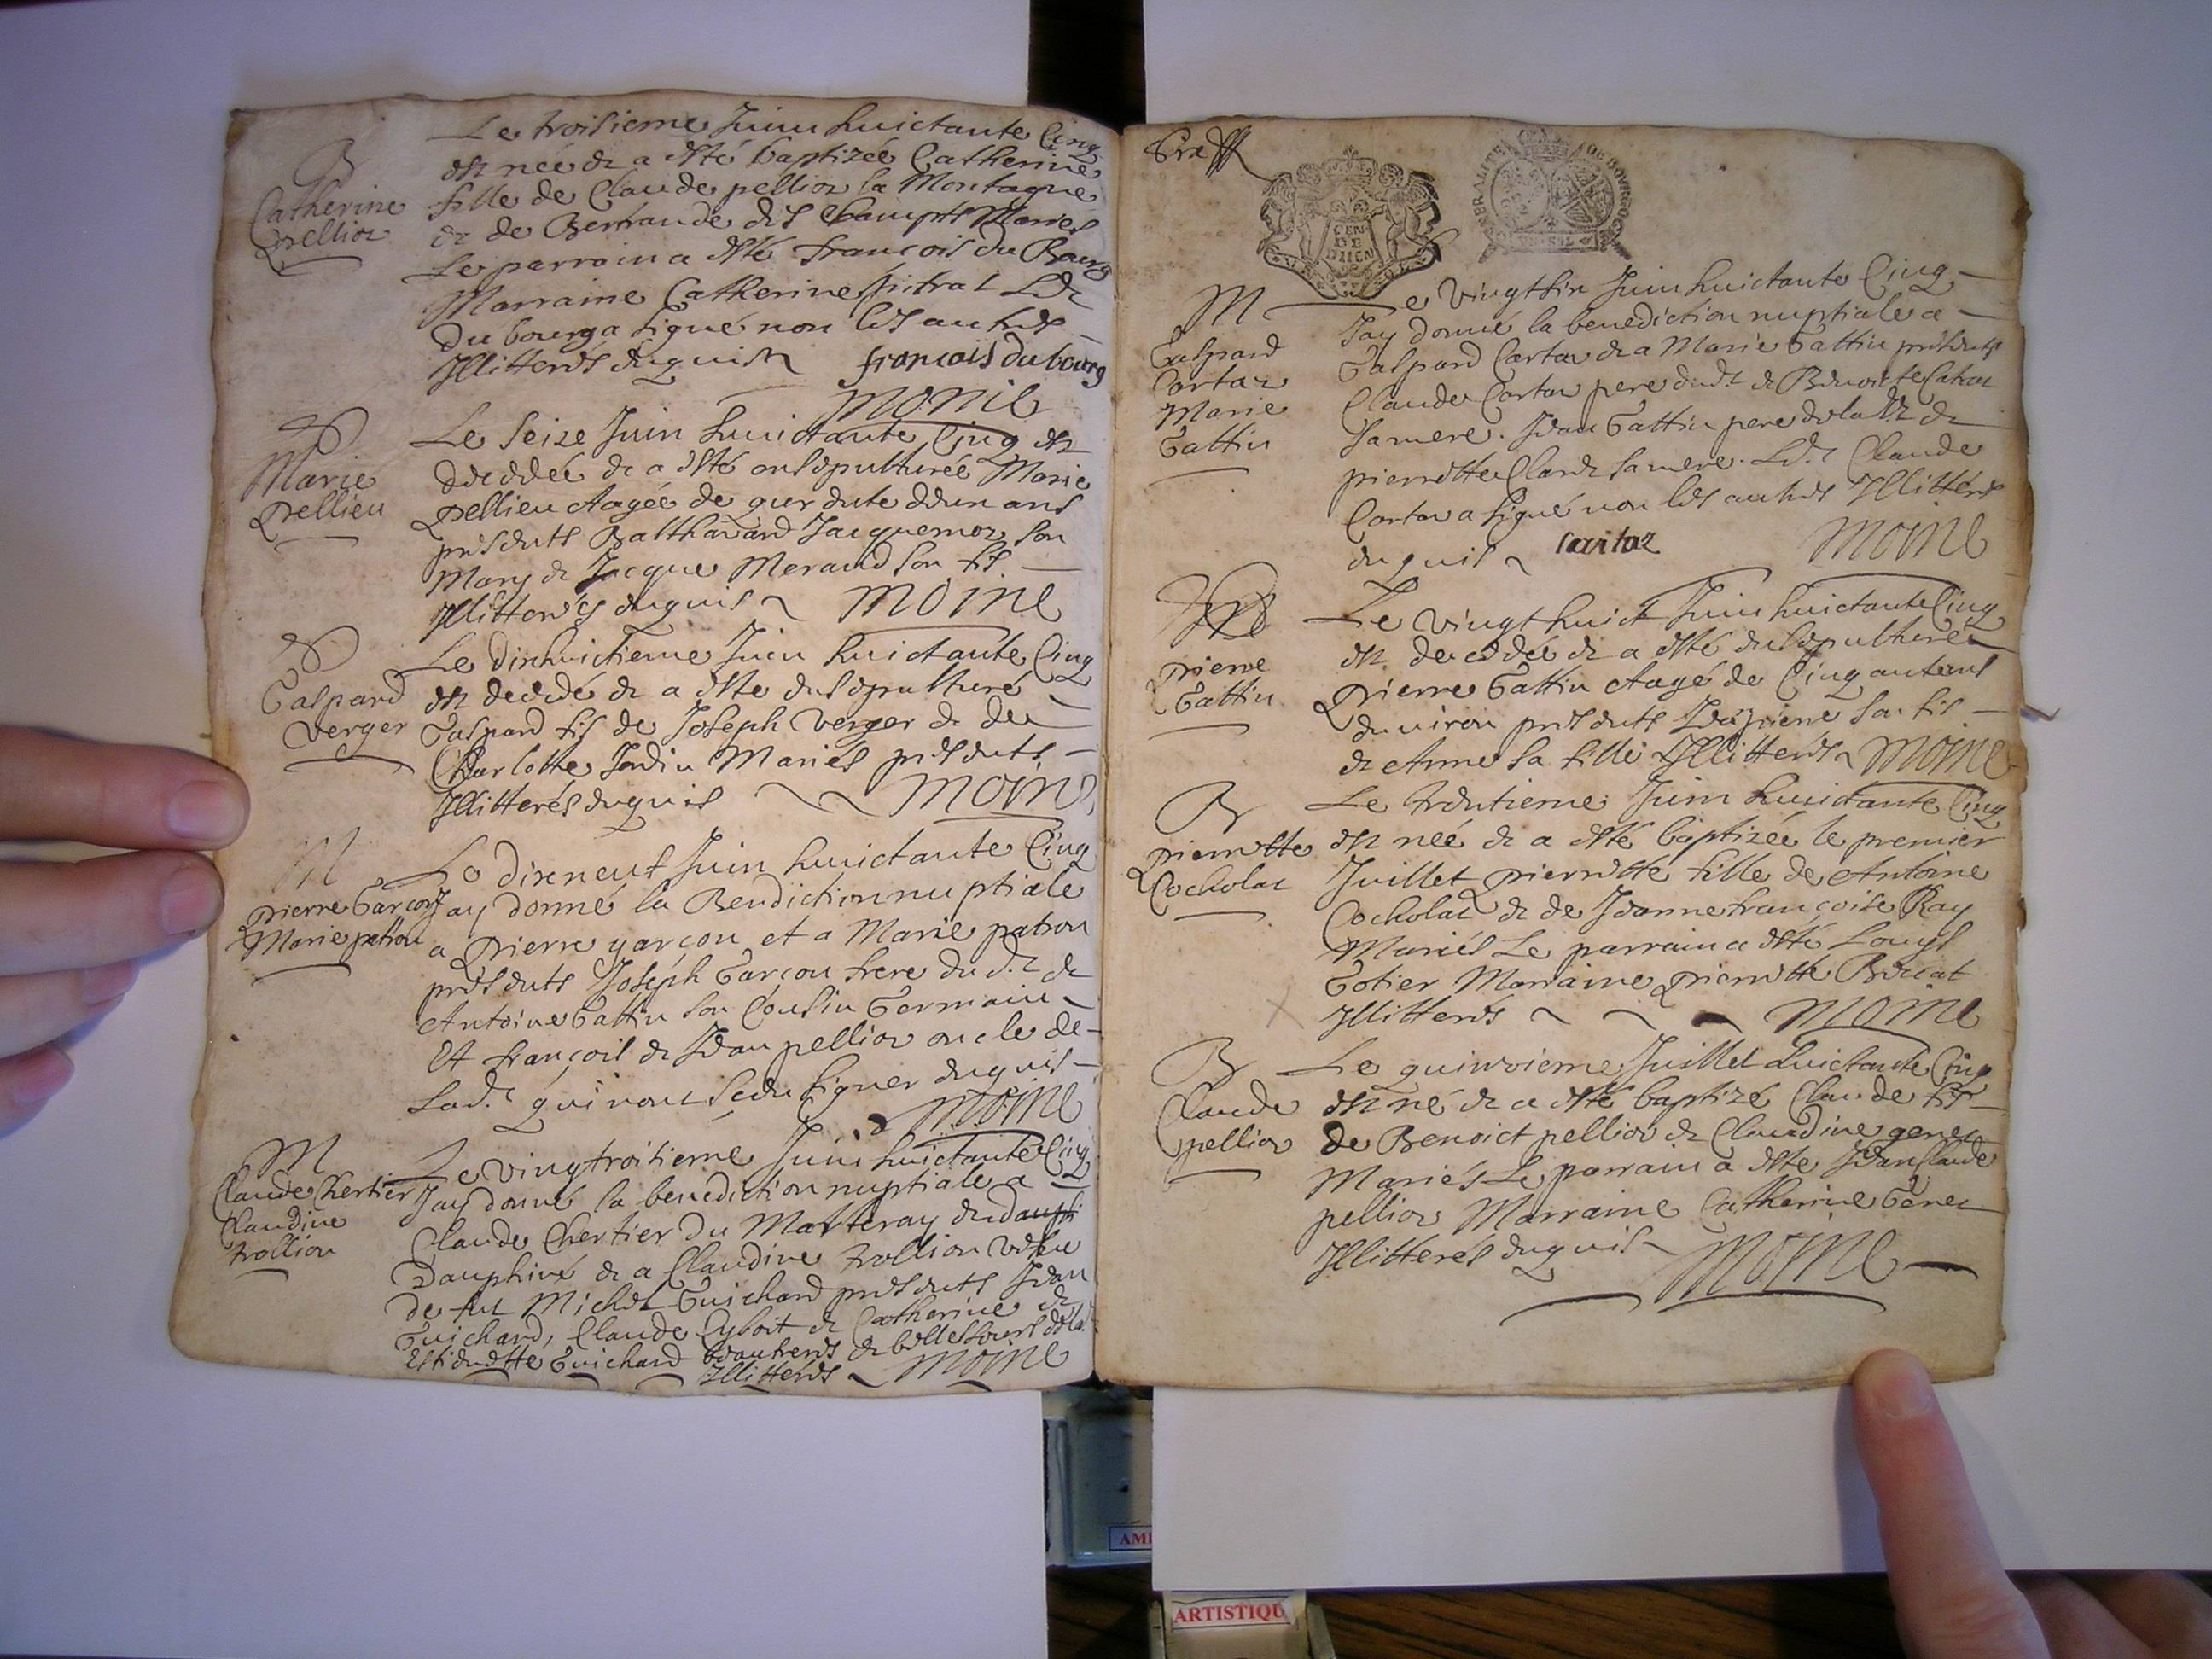 B
Catherine
pellioz
Le troisieme Juin huictante Cinq
est née et a esté baptizée Catherine
fille de Claude pellioz la Montagne
et de Bernande des Champts Mariés
Le parrain a esté françois du Bourg
Marraine Catherine L.dt
Du bourg a signé non les autres
Illitterés enquis francois du bourg
Monie
Marie
pellieu
Le Seize Juin huictante Cinq est
decedée et a esté ensepulturée Marie
pellieu Aagée de ans
presents Balthazard Jacquemoz son
Mary et Jacque Meraud son fils
Illitterés enquis Moine
Gaspard
Verger
Le dixhuictieme Juin huictante Cinq
est decedé et a esté ensepulturé
Gaspard fils de Joseph Verger et de
Charlotte Jardin Mariés presents
Illitterés enquis Moine
M
pierre Garçon
Marie patron
Le dixneuf Juin huictante Cinq
J'ay donné la Benediction nuptiale
a pierre garçon et a Marie patron
presents Joseph Garçon frere du d.t et
Antoine Gattin son Cousin Germain
Et françois et Jean pellioz oncle de
Lad.te qui n'ont sceu signer enquis
Moine
M
Claude Chertier
Claudine
trollion
Le vingtroisieme Juin huictante Cinq
J'ay donné la benediction nuptiale a
Claude Chertier Du Malteray en daupi
Dauphiné et a Claudine trollion vefve
de fut Michel Guichard presents Jean
Guichard, Claude Cyboit et Catherine et
Estiennette Guichard beaufreres et belles soeurs de la
Illitterés Moine
GEN
DE
DIJON
GENERALITE DE BOURGOGNE
M
Gaspard
Cartaz
Marie
Gattin
Le vingtsix Juin huictante Cinq
J'ay donné la benediction nuptiale a
Gaspard Cartaz et a Marie Gattin presents
Claude Cartaz pere dud.t et Benoicte
sa mere. Jean Gattin pere de la dt et
pierrette Claret sa mere. L.dt Claude
Cartaz a signé non les autres Illitterés
enquis Cartaz Moine
pierre
Gattin
Le vingthuict Juin huictante Cinq
est decedée et a esté ensepulturée
pierre Gattin Aagé de Cinquanteans
environ presents Jeanpierre son fils
et Anne sa fille Illitterés Moine
B
pierrette
Cocholat
Le trentieme Juin huictante Cinq
est née et a esté baptizée le premier
Juillet pierrette fille de Antoine
Cocholat et de Jeanne françoise Ray
Mariés Le parrain a esté Louys
Gotier Marraine pierrette Brucat
Illitterés Moine
B
Claude
pellioz
Le quinzieme Juillet huictante Cinq
est né et a esté baptizé Claude fils
de Benoict pellioz et Claudine genet
Mariés Le parrain a esté Jean Claude
pellioz Marraine Catherine Genet
Illitterés enquis Moine
AMI
ARTISTIQU